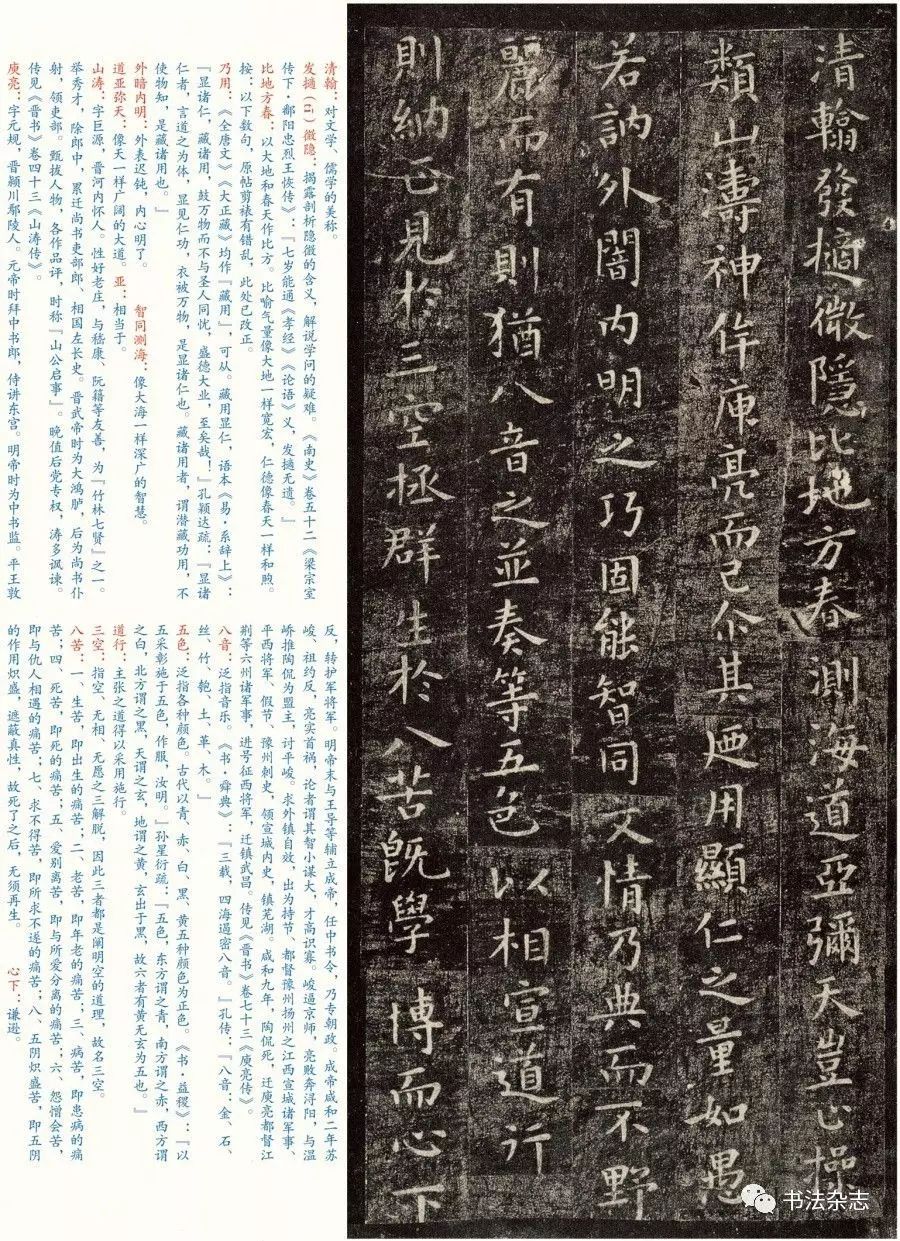 清翰發擿微隱比地方春測海道亞彌天豈止操
類山濤神侔庾亮而已尒其廼用顯仁之量如愚
若訥外闇内明之巧固能智同文情乃典而不野
麗而有則猶八音之並奏等五色以相宣道行
則納正見於三空拯群生於八苦既學博而心下
清翰：对文学、儒学的美称。
发擿（tī）微隐：揭露剖析隐微的含义，解说学问的疑难。《南史》卷五十二《梁宗室
传下·鄱阳忠烈王恢传》：『七岁能通《孝经》《论语》义，发擿无遗。』
比地方春：以大地和春天作比方。比喻气量像大地一样宽宏，仁德像春天一样和煦。
按：以下数句，原帖剪裱有错乱，此处已改正。
乃用：《全唐文》《大正藏》均作『藏用』，可从。藏用显仁，语本《易·系辞上》：
『显诸仁，藏诸用，鼓万物而不与圣人同忧，盛德大业，至矣哉！』孔颖达疏：『显诸
仁者，言道之为体，显见仁功，衣被万物，是显诸仁也。藏诸用者，谓潜藏功用，不
使物知，是藏诸用也。』
外暗内明：外表迟钝，内心明了。 智同测海：像大海一样深广的智慧。
道亚弥天：像天一样广阔的大道。亚：相当于。
山涛：字巨源，晋河内怀人。性好老庄，与嵇康、阮籍等友善，为『竹林七贤』之一。
举秀才，除郎中，累迁尚书吏部郎、相国左长史。晋武帝时为大鸿胪，后为尚书仆
射，领吏部。甄拔人物，各作品评，时称『山公启事』。晚值后党专权，涛多讽谏。
传见《晋书》卷四十三《山涛传》。
庾亮：字元规，晋颍川鄢陵人。元帝时拜中书郎，侍讲东宫。明帝时为中书监。平王敦
反，转护军将军。明帝末与王导等辅立成帝，任中书令，乃专朝政。成帝咸和二年苏
峻、祖约反，亮实首祸，论者谓其智小谋大，才高识寡。峻逼京师，亮败奔浔阳，与温
峤推陶侃为盟主，讨平峻。求外镇自效，出为持节、都督豫州扬州之江西宣城诸军事、
平西将军、假节、豫州刺史，领宣城内史，镇芜湖。咸和九年，陶侃死，迁庾亮都督江
荆等六州诸军事，进号征西将军，迁镇武昌。传见《晋书》卷七十三《庾亮传》。
八音：泛指音乐。《书·舜典》：『三载，四海遏密八音。』孔传：『八音：金、石、
丝、竹、匏、土、革、木。』
五色：泛指各种颜色。古代以青、赤、白、黑、黄五种颜色为正色。《书·益稷》：『以
五采彰施于五色，作服，汝明。』孙星衍疏：『五色，东方谓之青，南方谓之赤，西方谓
之白，北方谓之黑，天谓之玄，地谓之黄，玄出于黑，故六者有黄无玄为五也。』
道行：主张之道得以采用施行。
三空：指空、无相、无愿之三解脱，因此三者都是阐明空的道理，故名三空。
八苦：一、生苦，即出生的痛苦；二、老苦，即年老的痛苦；三、病苦，即患病的痛
苦；四、死苦，即死的痛苦；五、爱别离苦，即与所爱分离的痛苦；六、怨憎会苦，
即与仇人相遇的痛苦；七、求不得苦，即所求不遂的痛苦；八、五阴炽盛苦，即五阴
的作用炽盛，遮蔽真性，故死了之后，无须再生。 心下：谦逊。
书法杂志